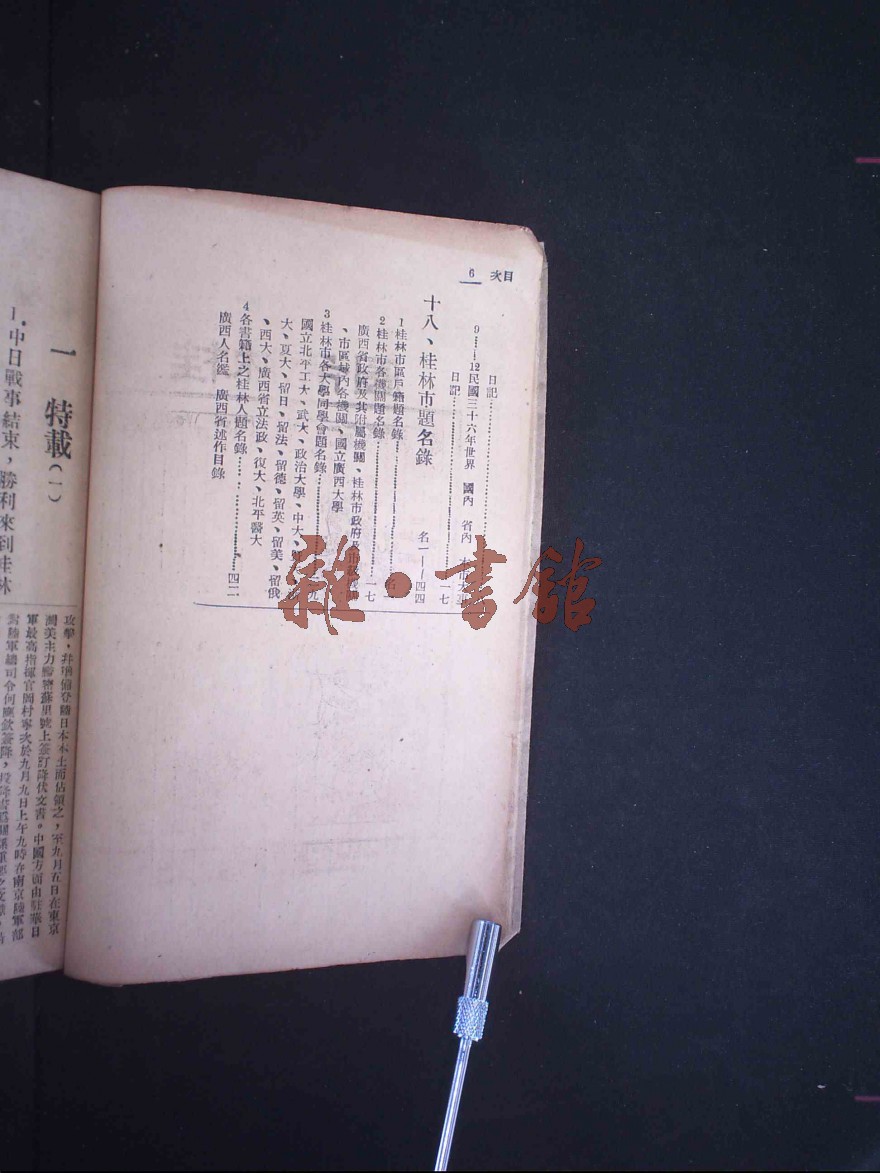 目次 6
日記
9……12民國三十六年世界 國內 省內
日記……一七
十八、桂林市題名錄 名一——四四
1桂林市區戶籍題名錄
2桂林市各機關題名錄……一七
廣西省政府及其附屬機關、桂林市政府及
、市區域內各機關、國立廣西大學
3桂林市各大學同學會題名錄……九
國立北平工大、武大、政治大學、中大、
大、夏大、留日、留法、留德、留英、留美、留俄
、西大、廣西省立法政、復大、北平醫大
4各書籍上之桂林人題名錄……四二
廣西人名鑑 廣西省述作目錄
雜·書館
一 特載(一)
1.中日戰事結束,勝利來到桂林
攻擊,并準備登陸日本本土而佔領之,至九月五日在東京
灣美主力艦密蘇里號上簽訂降伏文書。中國方面由駐華日
軍最高指揮官岡村寧次於九月九日上午九時在南京陸軍部
對陸軍總司令何應欽簽降,